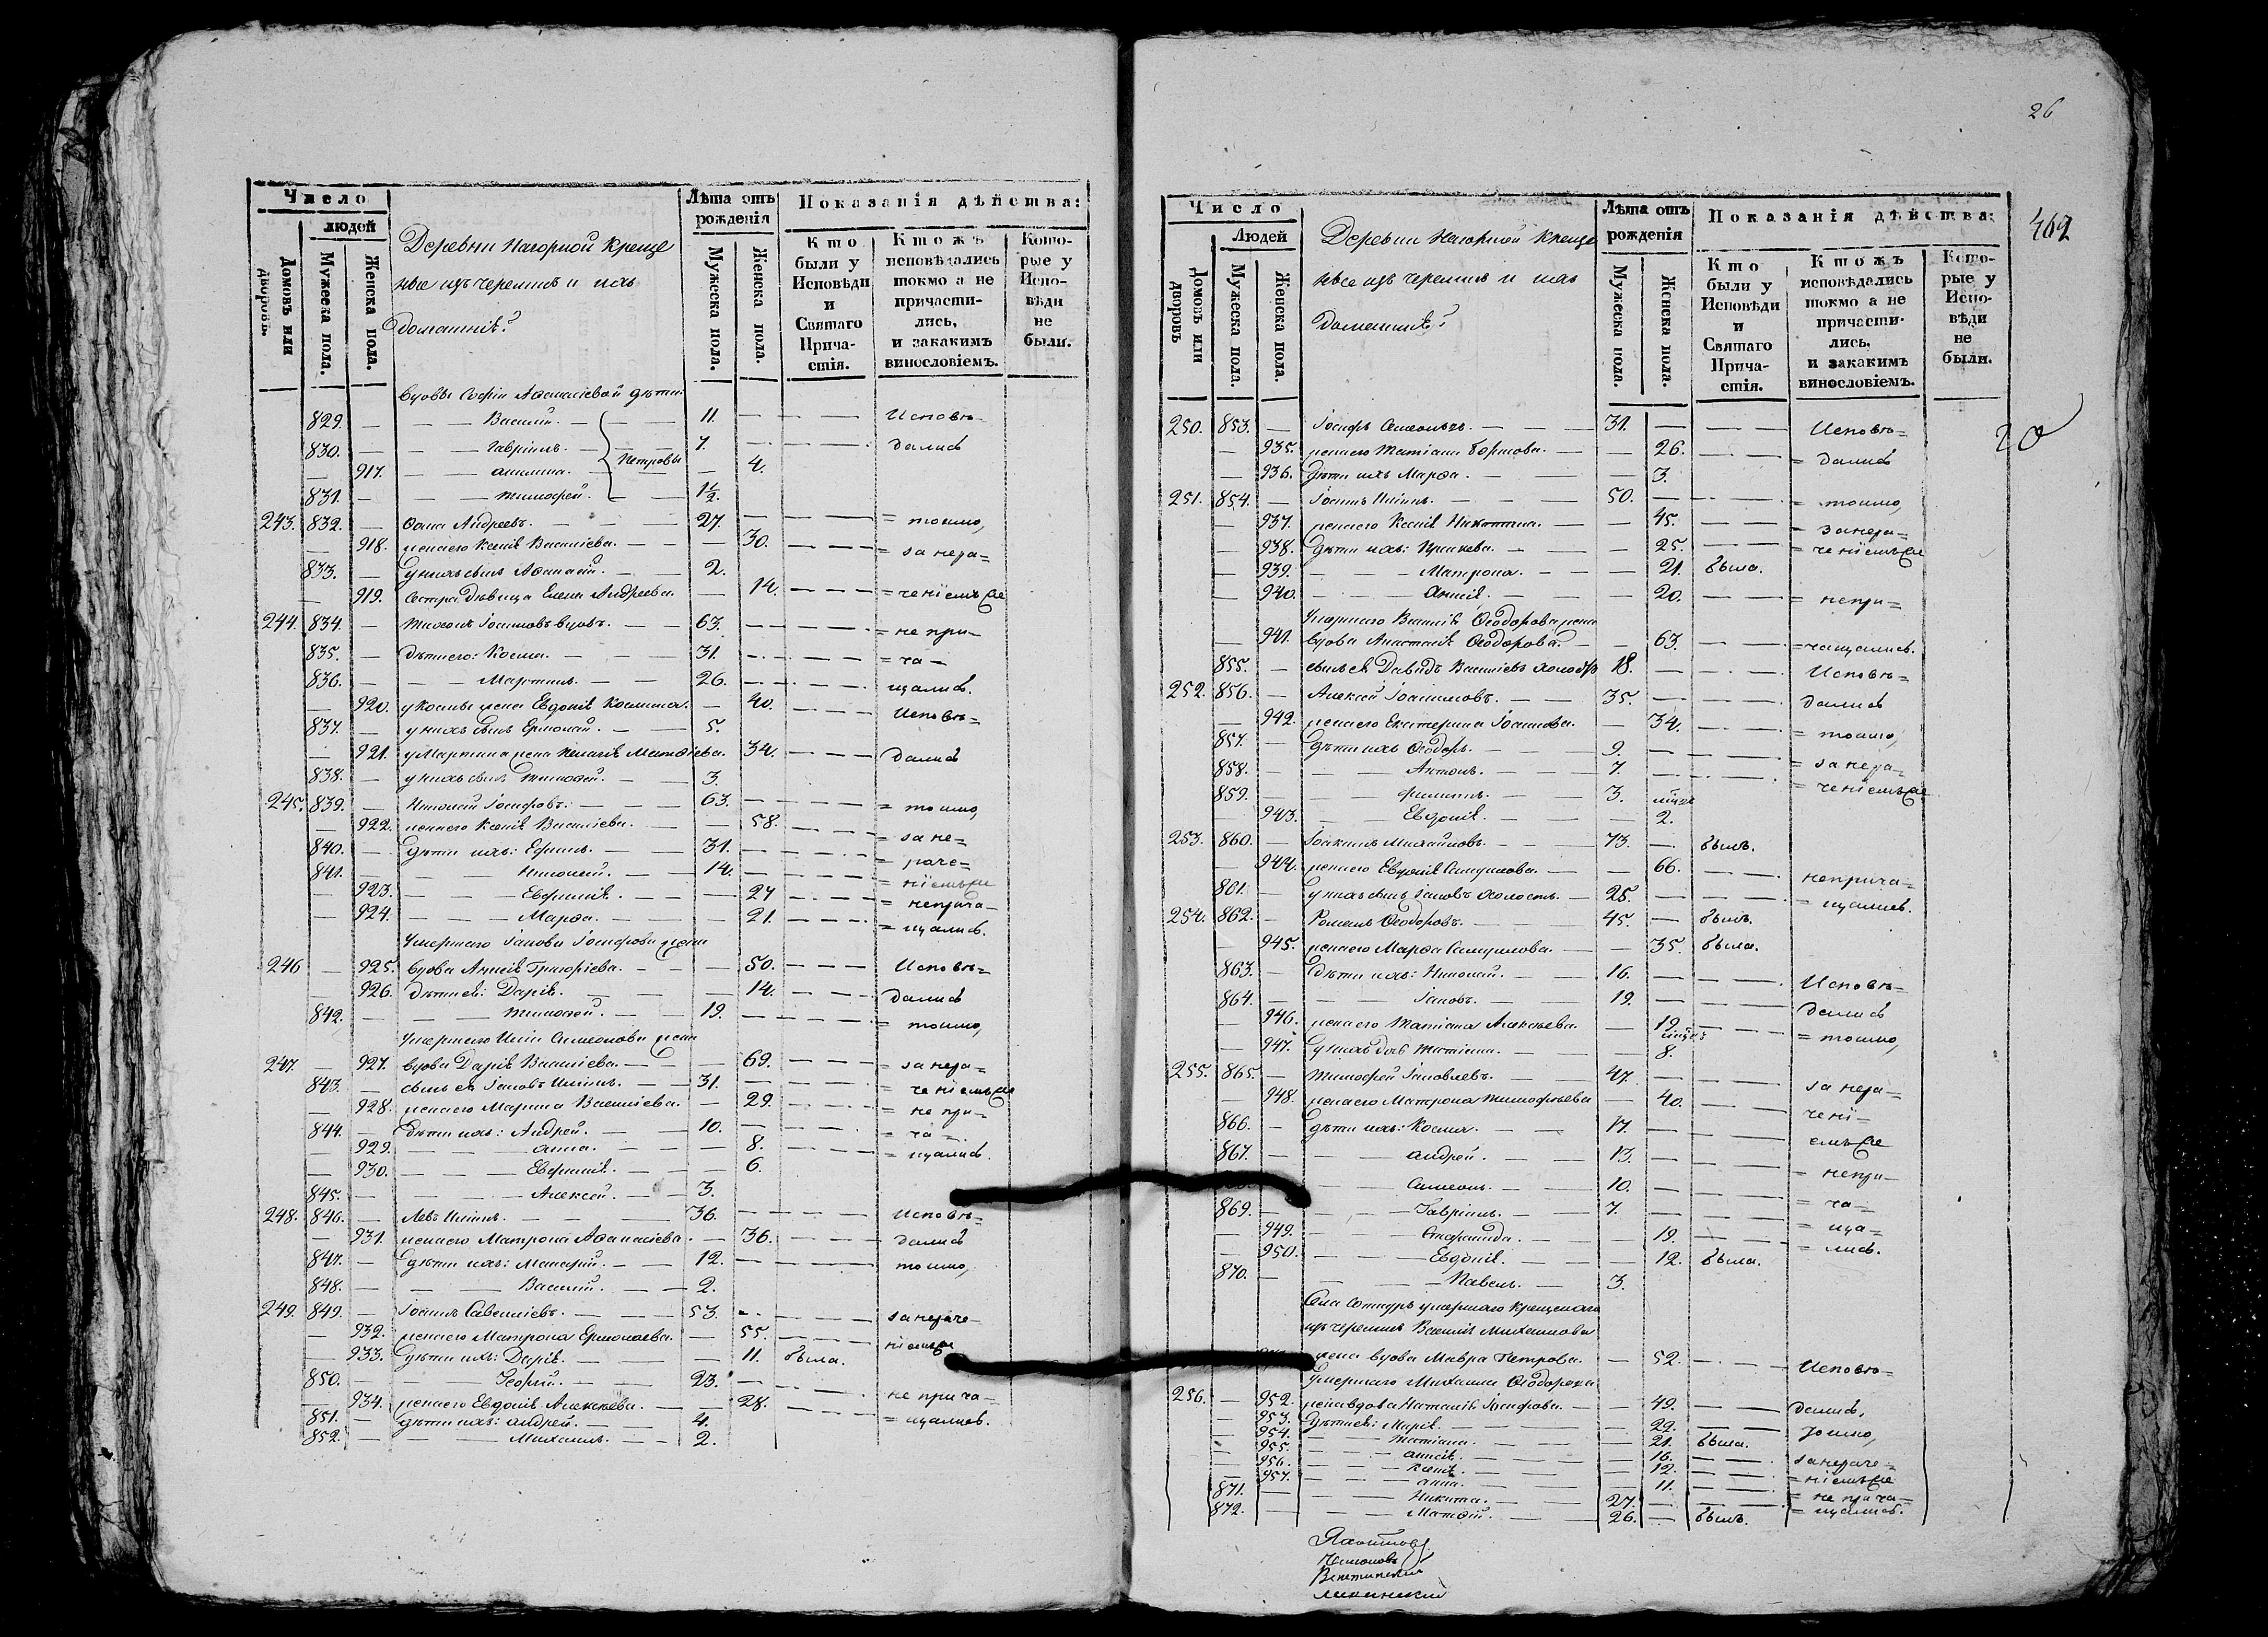 Число
людей
Домовъ или дворовъ.
Мужеска пола.
Женска пола.
Деревни Нагорной Креще
ные изъ черемисъ и ихъ
домашніѣ:
Лѣта отъ рожденія
Мужеска пола.
Женска пола.
Показанія дѣйства:
Кто были у Исповѣди и Святаго Причастія.
Ктожъ исповѣдались токмо а не причастились, и закакимъ винословіемъ.
Которые у Исповѣди не были.
вдовы Софіи Афанасіевой дѣти
829. — — — Василій. — 11. — — — Исповѣ=
830. — — — Гавріилъ. — Петровы 7. — — — дались
— 917. — — — — 4.
831. — — — Тимофей. — 1½.
243. 832. — Фома Андреевъ. — — — 27. — — — = токмо,
— 918. жена его Ксенія Василіева. — — 30. — — — = за нера=
833. — у нихъ сынъ Афанасій. — 2.
— 919. Сестра дѣвица Елена Андреева. — 14. — — — = ченіемъ
244. 834. — Іоанновъ вдовъ. — 63. — — — = не при=
835. — дѣти его: Косма. — — 31. — — — = ча —
836. — — — Мартинъ. — — 26. — — — щались.
— 920. у Космы жена Евдокія Космина. — 40. — — — Исповѣ=
837. — у нихъ сынъ Ермолай. — 5.
— 921. у Мартина жена Матфіева. 34. — — — дались
838. — у нихъ сынъ Тимофей. — 3.
245. 839. — Николай Іосифовъ. — — — 63. — — — = токмо,
— 922. жена его Ксенія Василіева. — — 58. — — — = за не=
840. — дѣти ихъ: Ефимъ. — — 31. — — — = раче=
841. — — — Николай. — 14. — — — = ніемъ
— 923. — — — Евфимія. — — 27 — — — = неприча=
— 924. — — — Марфа. — — 21. — — — = щались.
Умершаго Іакова Іосифова жена
246 — 925. вдова Анисія Григоріева. — — — 50. — — — Исповѣ=
— 926. дѣти ея: Дарія. — — — 14. — — — дались
842. — — — Тимофей. — — 19. — — — = токмо,
Умершаго Иліи Симеонова жена
247. — 927. вдова Дарія Василіева. — — — 69. — — — = за нера=
843. — сынъ ея Іаковъ Ильинъ. — — 31. — — — = ченіемъ
— 928. жена его Марина Василіева. — 29. — — — = не при=
844. — дѣти ихъ: Андрей. — — 10. — — — = ча —
— 929. — — — Анна. — — 8. — — — = щались.
— 930. — — — Евфимія. — — 6.
845. — — — Алексѣй. — — 3.
248. 846. — Левъ Ильинъ. — — — 36. — — — Исповѣ=
— 931. жена его Матрона Афанасіева. — 36. — — — дались
847. — дѣти ихъ: Макарій. — — 12. — — — токмо,
848. — — — Василій. — — 2.
249. 849. — Іоаннъ Савеліевъ. — — 53. — — — за нераче=
— 932. жена его Матрона Ермолаева. — 55. — — — ніемъ
— 933. дѣти ихъ: Дарія. — — — 11. была.
850. — — — Георгій. — — 23. — — — не прича=
— 934. жена его Евдокія Алексѣева. — — 28. — — — = щались.
851. — дѣти ихъ: Андрей. — — 4.
852. — — — Михаилъ. — — 2.
26
462
Число
Людей
Домовъ или дворовъ
Мужеска пола.
Женска пола.
Деревни Нагорной Креще
ные изъ черемисъ и ихъ
домашніѣ:
Лѣта отъ рожденія
Мужеска пола.
Женска пола.
Показанія дѣйства:
Кто были у Исповѣди и Святаго Причастія.
Ктожъ исповѣдались токмо а не причастились, и закакимъ винословіемъ.
Которые у Исповѣди не были.
250. 853. — Іосифъ Симеоновъ. — — — 31. — — — Исповѣ=
— 935. жена его Татіана. — — 26. — — — = дались
— 936. дѣти ихъ Марфа. — — — 3.
251. 854. — Іоаннъ Ильинъ. — — — 50. — — — = токмо,
— 937. жена его Ксенія Никитина. — — 45. — — — = за нера=
— 938. дѣти ихъ: — — 25. — — — = ченіемъ
— 939. — — — Матрона. — — — 21. была.
— 940. — — — Анисія. — — — 20. — — — = непри=
Умершаго Василія Феодорова жена
— 941. вдова Анастасія Феодорова. — — 63. — — — = чащались.
855. — сынъ ея Давидъ Василіевъ холостъ 18. — — — Исповѣ=
252. 856. — Алексѣй Іоанновъ. — — 35. — — — дались
— 942. жена его Екатерина Іоаннова. — 34. — — — = токмо,
857. — дѣти ихъ Феодоръ. — — — 9. — — —
858. — — — Антонъ. — — — 7. — — — = за нера=
859. — — — Филиппъ. — — 3. — = ченіемъ
943. — — — Евдокія. — — — 2.
253. 860. — Іоакимъ Михайловъ. — — — 73. — былъ.
944. жена его Евдокія Самуилова. — — 66. — — — неприча=
861. — у нихъ сынъ Іаковъ холостъ. — 25. — — — = щались.
254. 862. — Романъ Феодоровъ. — — 45. — былъ.
— 945. жена его Марфа Самуилова. — — 35. была.
863. — дѣти ихъ: Николай. — — 16. — — — Исповѣ=
864. — — — Іаковъ. — — 19. — — — дались
— 946. жена его Татіана Алексѣева. — 19. — — — = токмо,
— 947. у нихъ дочь Татіана. — — — 8.
255. 865. — Тимофей Іаковлевъ. — — 47. — — — за нера=
— 948. жена его Матрона Тимофѣева — 40. — — — чені=
866. — дѣти ихъ: Косма. — — 17. — — — емъ
867. — — — Андрей. — — 13. — — — = непри=
— — — Симеонъ. — — 10. — — — = ча=
869. — — — Гавріилъ. — — 7. — — — = ща=
— 949. — — — — — 19. — — — = лись.
— 950. — — — Евдокія. — — 12. была.
870. — — — Павелъ. — — 3.
Села Сотнуръ умершаго крещенаго
изъ черемисъ Василія Михаилова
жена вдова Мавра Петрова. — 52. — — — Исповѣ=
Умершаго Михаила Феодорова
256. — 952. жена вдова Наталія Іосифова. — — 49. — — — дались,
— 953. дѣти ея: Марія. — — — 22. — — — токмо,
— 954. — — — Татіана. — — 21. была.
— 955. — — — Анисія. — — 16. — — — за нераче=
— 956. — — — Ксенія. — — 12. — — — = ніемъ
— 957. — — — Анна. — — 11. — — — = не прича=
871. — — — Никита. — — 27. — — — = щались.
872. — — — Матфій. — — 26. — былъ.